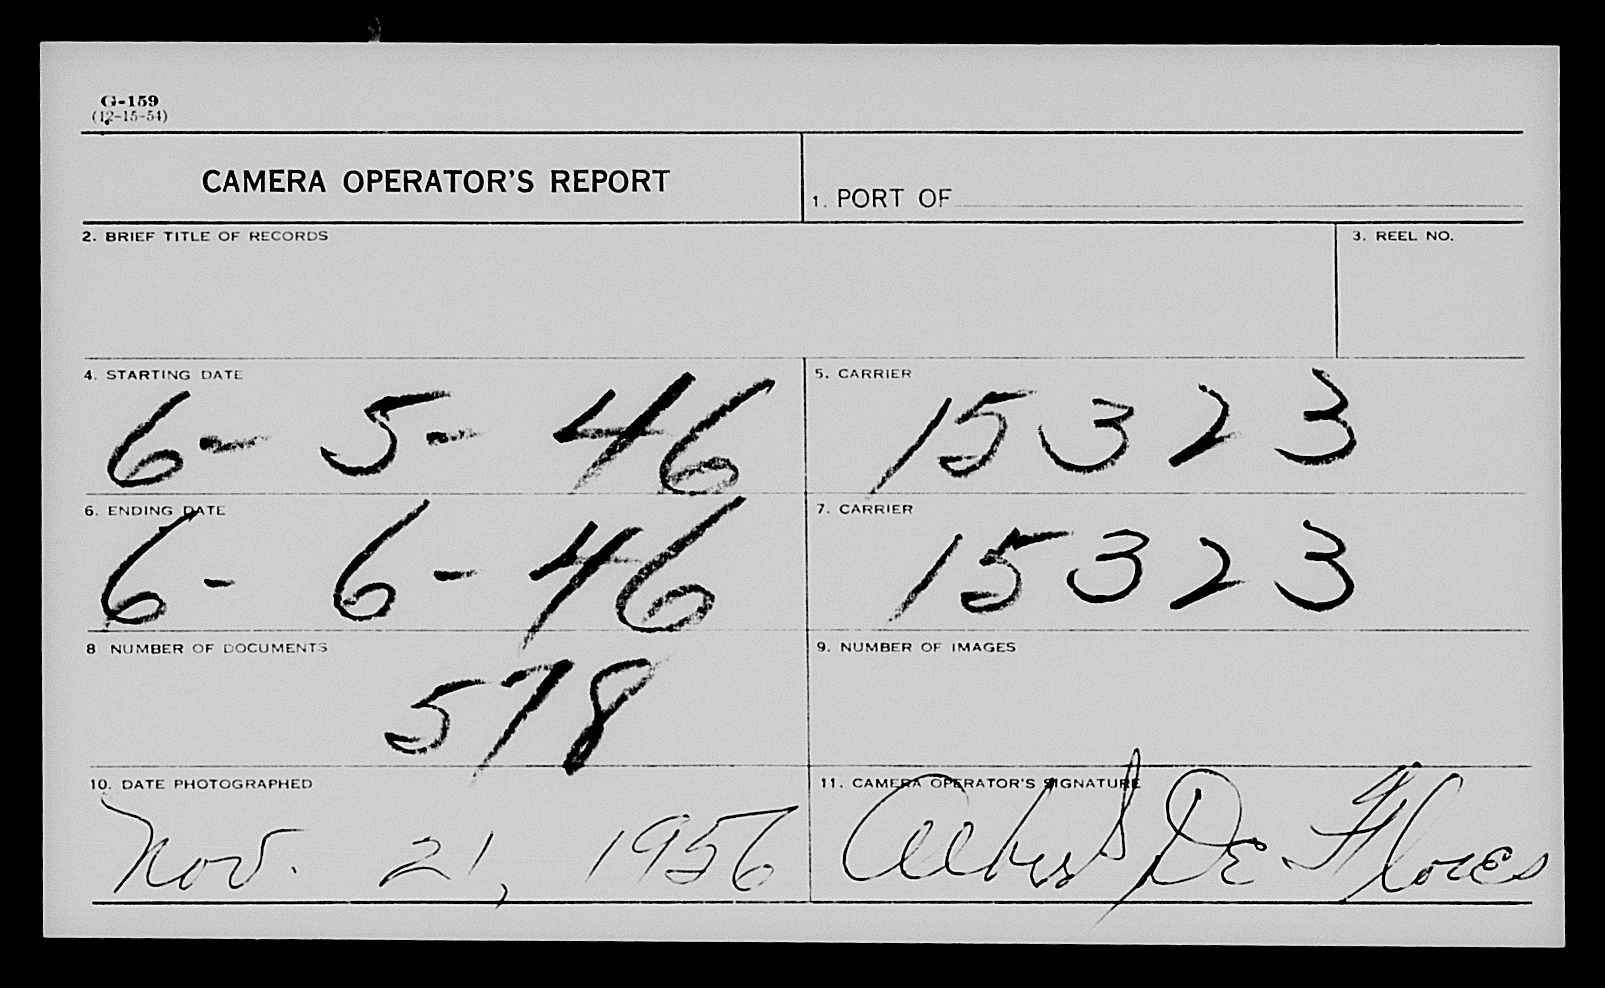 G-159
(12-15-54)
CAMERA OPERATOR'S REPORT
1. PORT OF
2. BRIEF TITLE OF RECORDS
3. REEL NO.
4. STARTING DATE
6- 5- 46
5. CARRIER
15323
6. ENDING DATE
6- 6- 46
7. CARRIER
15323
8 NUMBER OF DOCUMENTS
578
9. NUMBER OF IMAGES
10. DATE PHOTOGRAPHED
Nov. 21, 1956
11. CAMERA OPERATOR'S SIGNATURE
Albert De Flores